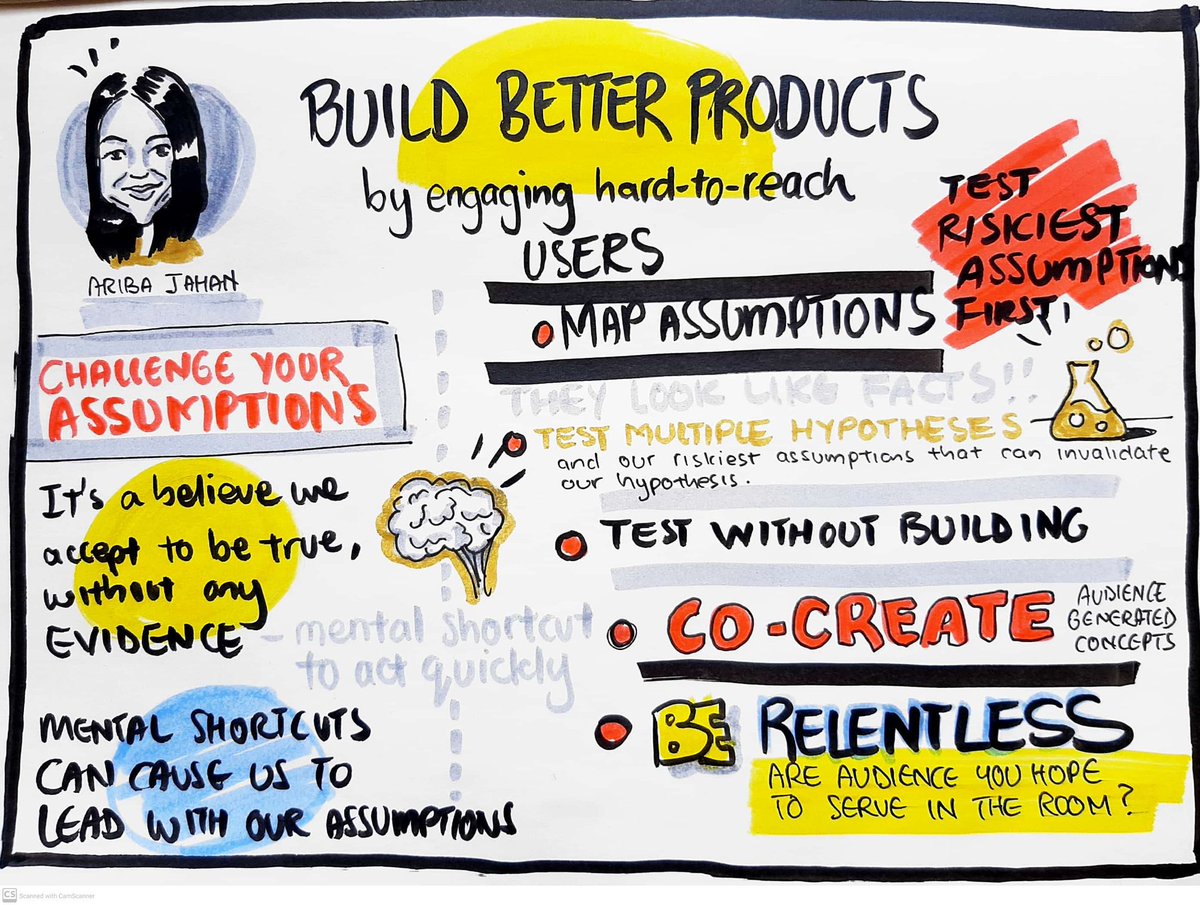 BUILD BETTER PRODUCTS
by engaging hard-to-reach
USERS
ARIBA JAHAN
CHALLENGE YOUR
ASSUMPTIONS
It's a believe we
accept to be true,
without any
EVIDENCE
- mental shortcut
to act quickly
MENTAL SHORTCUTS
CAN CAUSE US TO
LEAD WITH OUR ASSUMPTIONS
TEST
RISKIEST
ASSUMPTIONS
FIRST!
MAP ASSUMPTIONS
THEY LOOK LIKE FACTS!!
TEST MULTIPLE HYPOTHESES
and our riskiest assumptions that can invalidate
our hypothesis.
TEST WITHOUT BUILDING
CO-CREATE
AUDIENCE
GENERATED
CONCEPTS
BE RELENTLESS
ARE AUDIENCE YOU HOPE
TO SERVE IN THE ROOM?
CS Scanned with CamScanner